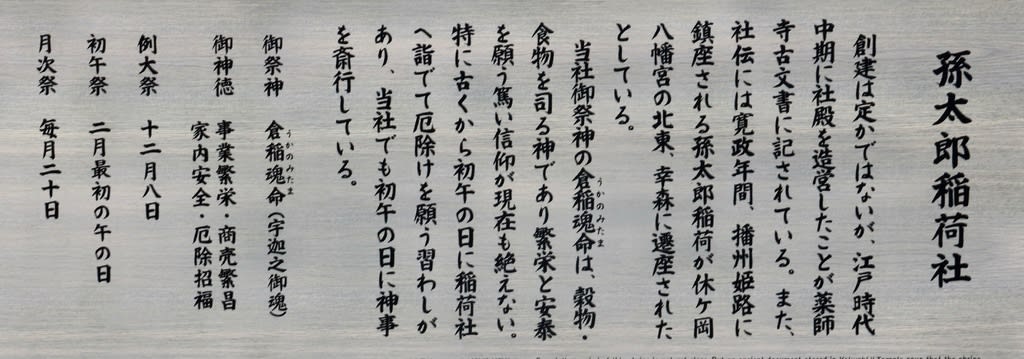 孫太郎稲荷社
創建は定かではないが、江戸時代
中期に社殿を造営したことが薬師
寺古文書に記されている。また、
社伝には寛政年間、播州姫路に
鎮座される孫太郎稲荷が休ケ岡
八幡宮の北東、幸森に遷座された
としている。
当社御祭神の倉稲魂命は、穀物・
うかのみたま
食物を司る神であり繁栄と安泰
を願う篤い信仰が現在も絶えない。
特に古くから初午の日に稲荷社
へ詣でて厄除けを願う習わしが
あり、当社でも初午の日に神事
を斎行している。
御祭神 倉稲魂命(宇迦之御魂)
うかのみたま
御神徳 事業繁栄・商売繁昌
家内安全・厄除招福
例大祭 十二月八日
初午祭 二月最初の午の日
月次祭 毎月二十日